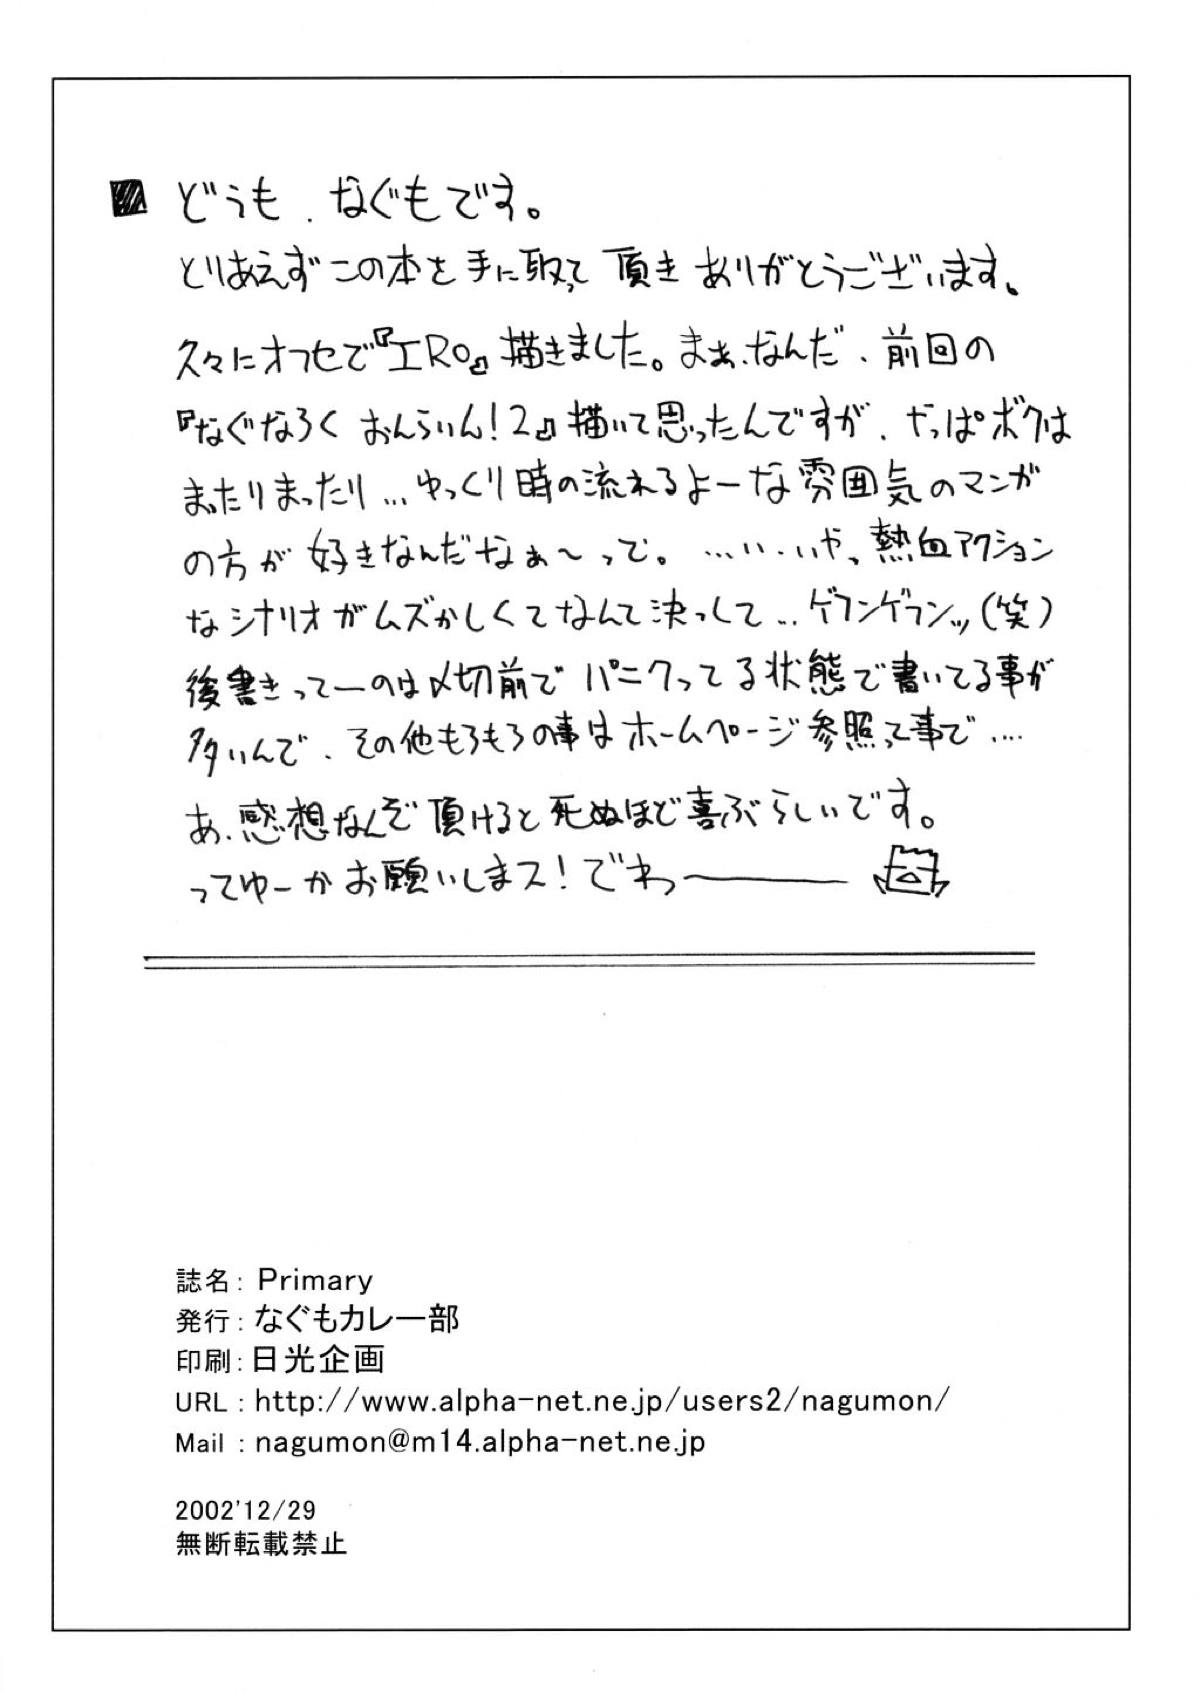 ■ どうも、なぐもです。
とりあえずこの本を手に取って頂きありがとうございます。
久々にオフセで『エRo』描きました。まぁ、なんだ、前回の
『なぐなろく おんらいん！2』描いて思ったんですが、やっぱボクは
まったりまったり…ゆっくり時の流れるよーな雰囲気のマンガ
の方が好きなんだなぁ～って。……い、いやっ、熱血アクション
なシナリオがムズかしくてなんて決っして…ゲフンゲフンッ（笑）
後書きってーのは〆切前でパニクってる状態で書いてる事が
多いんで、その他もろもろの事はホームページ参照って事で….
あ、感想なんぞ頂けると死ぬほど喜ぶらしいです。
ってゆーかお願いしまス！でわっ――――
誌名：Primary
発行：なぐもカレー部
印刷：日光企画
URL：http://www.alpha-net.ne.jp/users2/nagumon/
Mail：nagumon@m14.alpha-net.ne.jp
2002'12/29
無断転載禁止